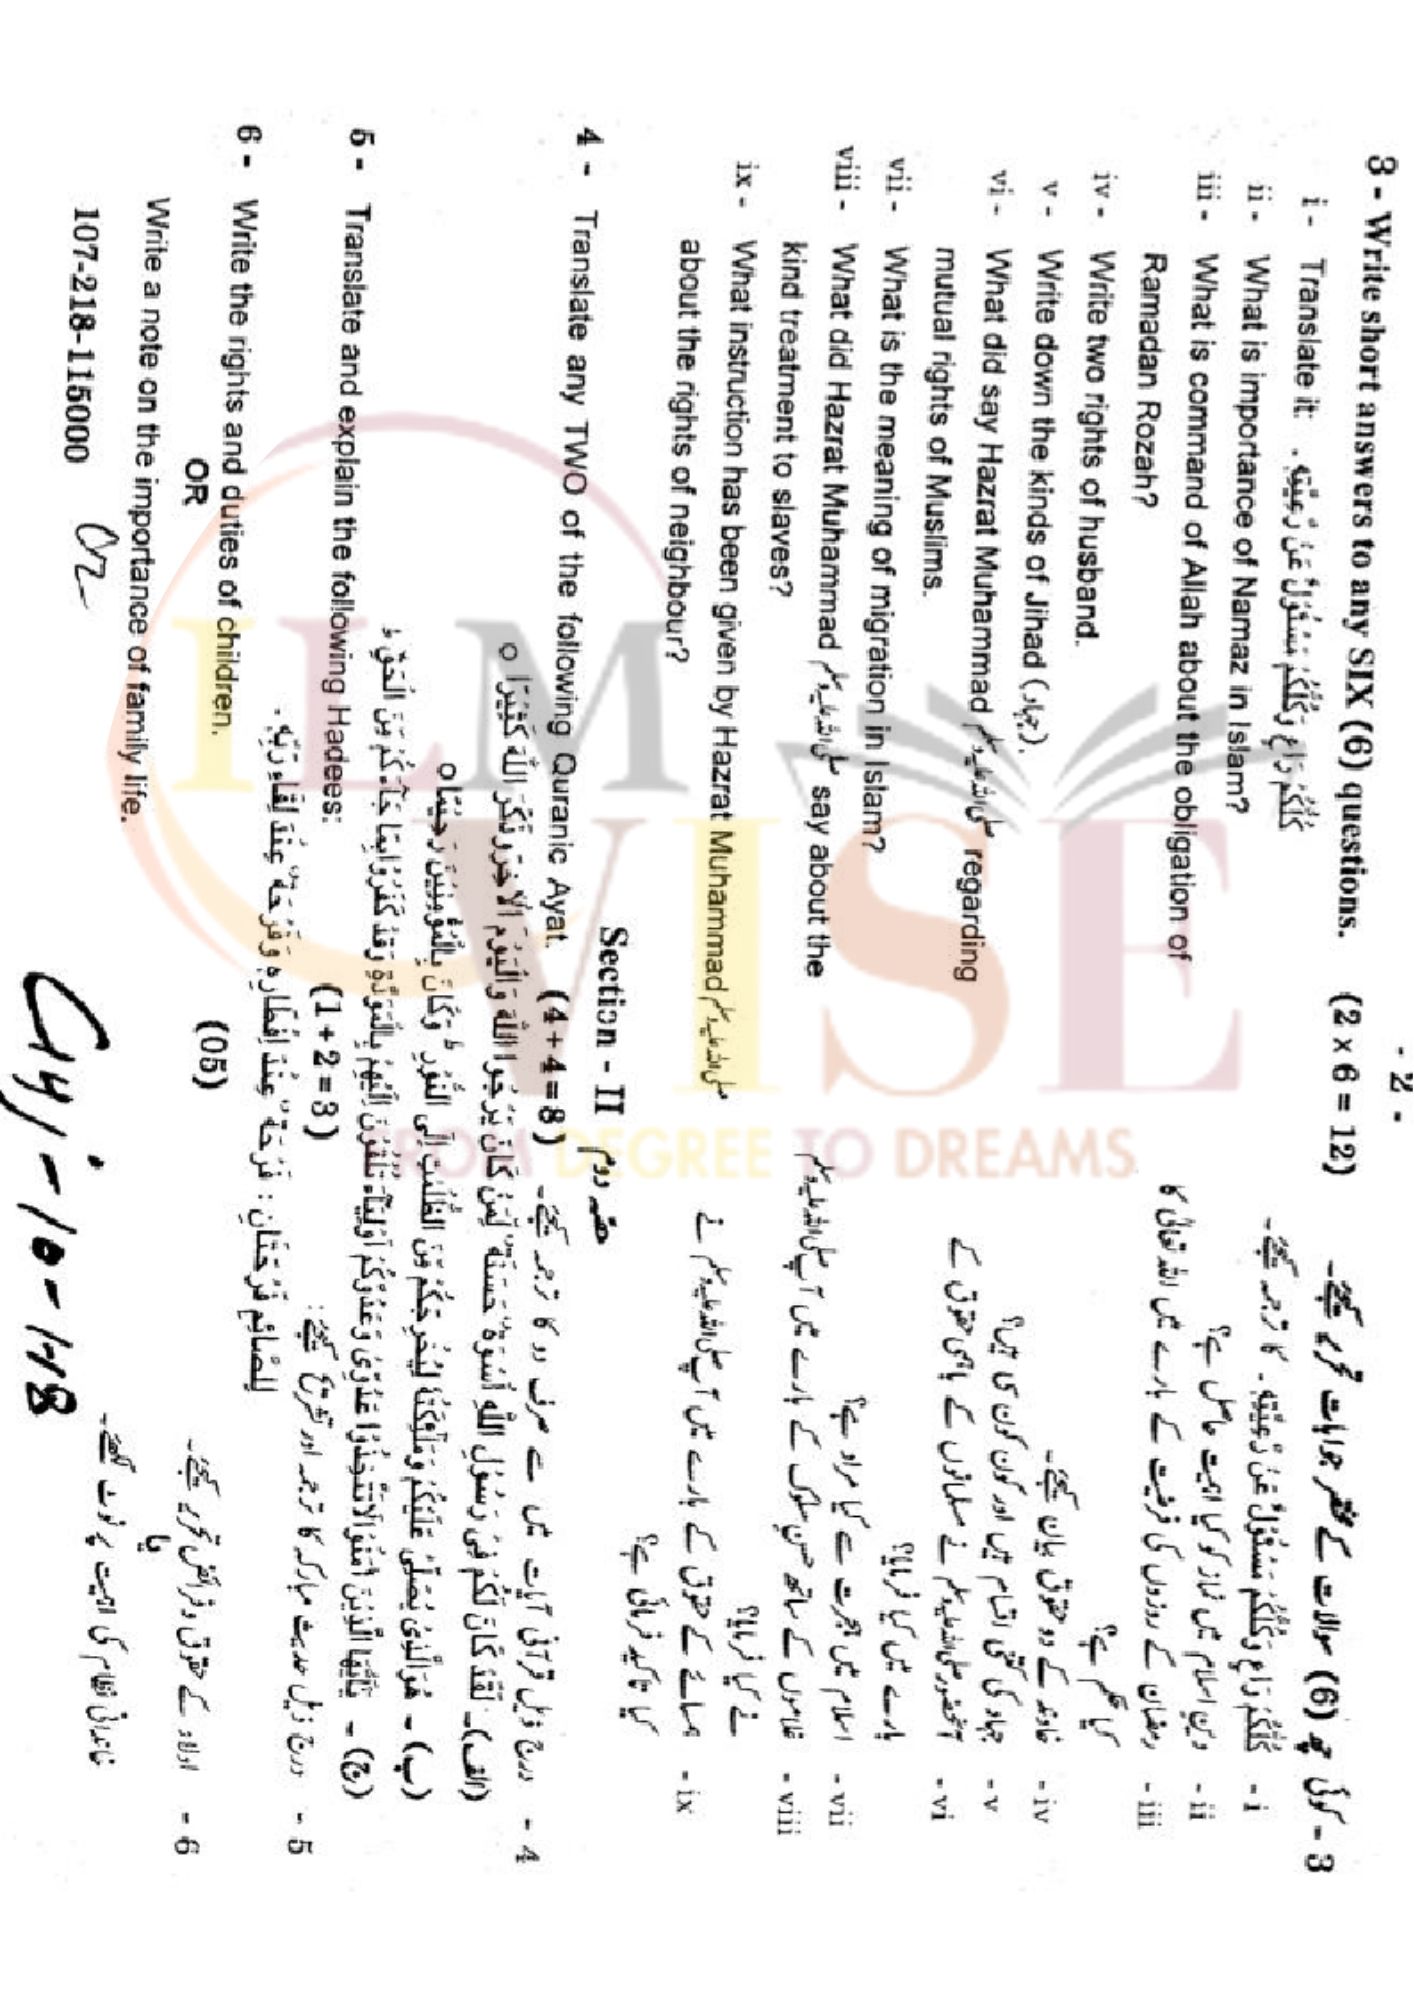 - 2 -
3 - Write short answers to any SIX (6) questions. (2 x 6 = 12)
3 - کوئی چھ (6) سوالات کے مختصر جوابات تحریر کیجئے۔
i - Translate it: كُلُّكُمْ رَاعٍ وَكُلُّكُمْ مَسْئُوْلٌ عَنْ رَعِيَّتِهِ .
i - كُلُّكُمْ رَاعٍ وَكُلُّكُمْ مَسْئُوْلٌ عَنْ رَعِيَّتِهِ ۔ کا ترجمہ کیجئے۔
ii - What is importance of Namaz in Islam?
ii - دین اسلام میں نماز کو کیا اہمیت حاصل ہے؟
iii - What is command of Allah about the obligation of
Ramadan Rozah?
iii - رمضان کے روزوں کی فرضیت کے بارے میں اللہ تعالیٰ کا
کیا حکم ہے؟
iv - Write two rights of husband.
iv - خاوند کے دو حقوق بیان کیجئے۔
v - Write down the kinds of Jihad (جہاد).
v - جہاد کی کتنی اقسام ہیں اور کون کون سی ہیں؟
vi - What did say Hazrat Muhammad صلی اللہ علیہ وسلم regarding
mutual rights of Muslims.
vi - آنحضور صلی اللہ علیہ وسلم نے مسلمانوں کے باہمی حقوق کے
بارے میں کیا فرمایا؟
vii - What is the meaning of migration in Islam?
vii - اسلام میں ہجرت سے کیا مراد ہے؟
viii - What did Hazrat Muhammad صلی اللہ علیہ وسلم say about the
kind treatment to slaves?
viii - غلاموں کے ساتھ حسن سلوک کے بارے میں آپ صلی اللہ علیہ وسلم
نے کیا فرمایا؟
ix - What instruction has been given by Hazrat Muhammad صلی اللہ علیہ وسلم
about the rights of neighbour?
ix - ہمسائے کے حقوق کے بارے میں آپ صلی اللہ علیہ وسلم نے
کیا تاکید فرمائی ہے؟
Section - II حصہ دوم
4 - Translate any TWO of the following Quranic Ayat. (4 + 4 = 8)
4 - درج ذیل قرآنی آیات میں سے صرف دو کا ترجمہ کیجئے۔
(الف)۔ لَقَدْ كَانَ لَكُمْ فِیْ رَسُوْلِ اللّٰهِ اُسْوَةٌ حَسَنَةٌ لِّمَنْ كَانَ يَرْجُوا اللّٰهَ وَالْيَوْمَ الْاٰخِرَ وَذَكَرَ اللّٰهَ كَثِيْرًا o
(ب) - هُوَ الَّذِیْ يُصَلِّیْ عَلَيْكُمْ وَمَلٰٓئِكَتُهٗ لِيُخْرِجَكُمْ مِّنَ الظُّلُمٰتِ اِلَی النُّوْرِ ط وَكَانَ بِالْمُؤْمِنِيْنَ رَحِيْمًا o
(ج) - يٰٓاَيُّهَا الَّذِيْنَ اٰمَنُوْا لَا تَتَّخِذُوْا عَدُوِّیْ وَعَدُوَّكُمْ اَوْلِيَآءَ تُلْقُوْنَ اِلَيْهِمْ بِالْمَوَدَّةِ وَقَدْ كَفَرُوْا بِمَا جَآءَكُمْ مِّنَ الْحَقِّ ط
5 - Translate and explain the following Hadees: (1 + 2 = 3)
5 - درج ذیل حدیث مبارکہ کا ترجمہ اور تشریح کیجئے :
لِلصَّائِمِ فَرْحَتَانِ : فَرْحَةٌ عِنْدَ اِفْطَارِهٖ وَفَرْحَةٌ عِنْدَ لِقَاءِ رَبِّهٖ .
6 - Write the rights and duties of children. (05)
6 - اولاد کے حقوق و فرائض تحریر کیجئے۔
OR
یا
Write a note on the importance of family life.
خاندانی نظام کی اہمیت پر نوٹ لکھئے۔
107-218-115000
ILM
VISE
FROM DEGREE TO DREAMS